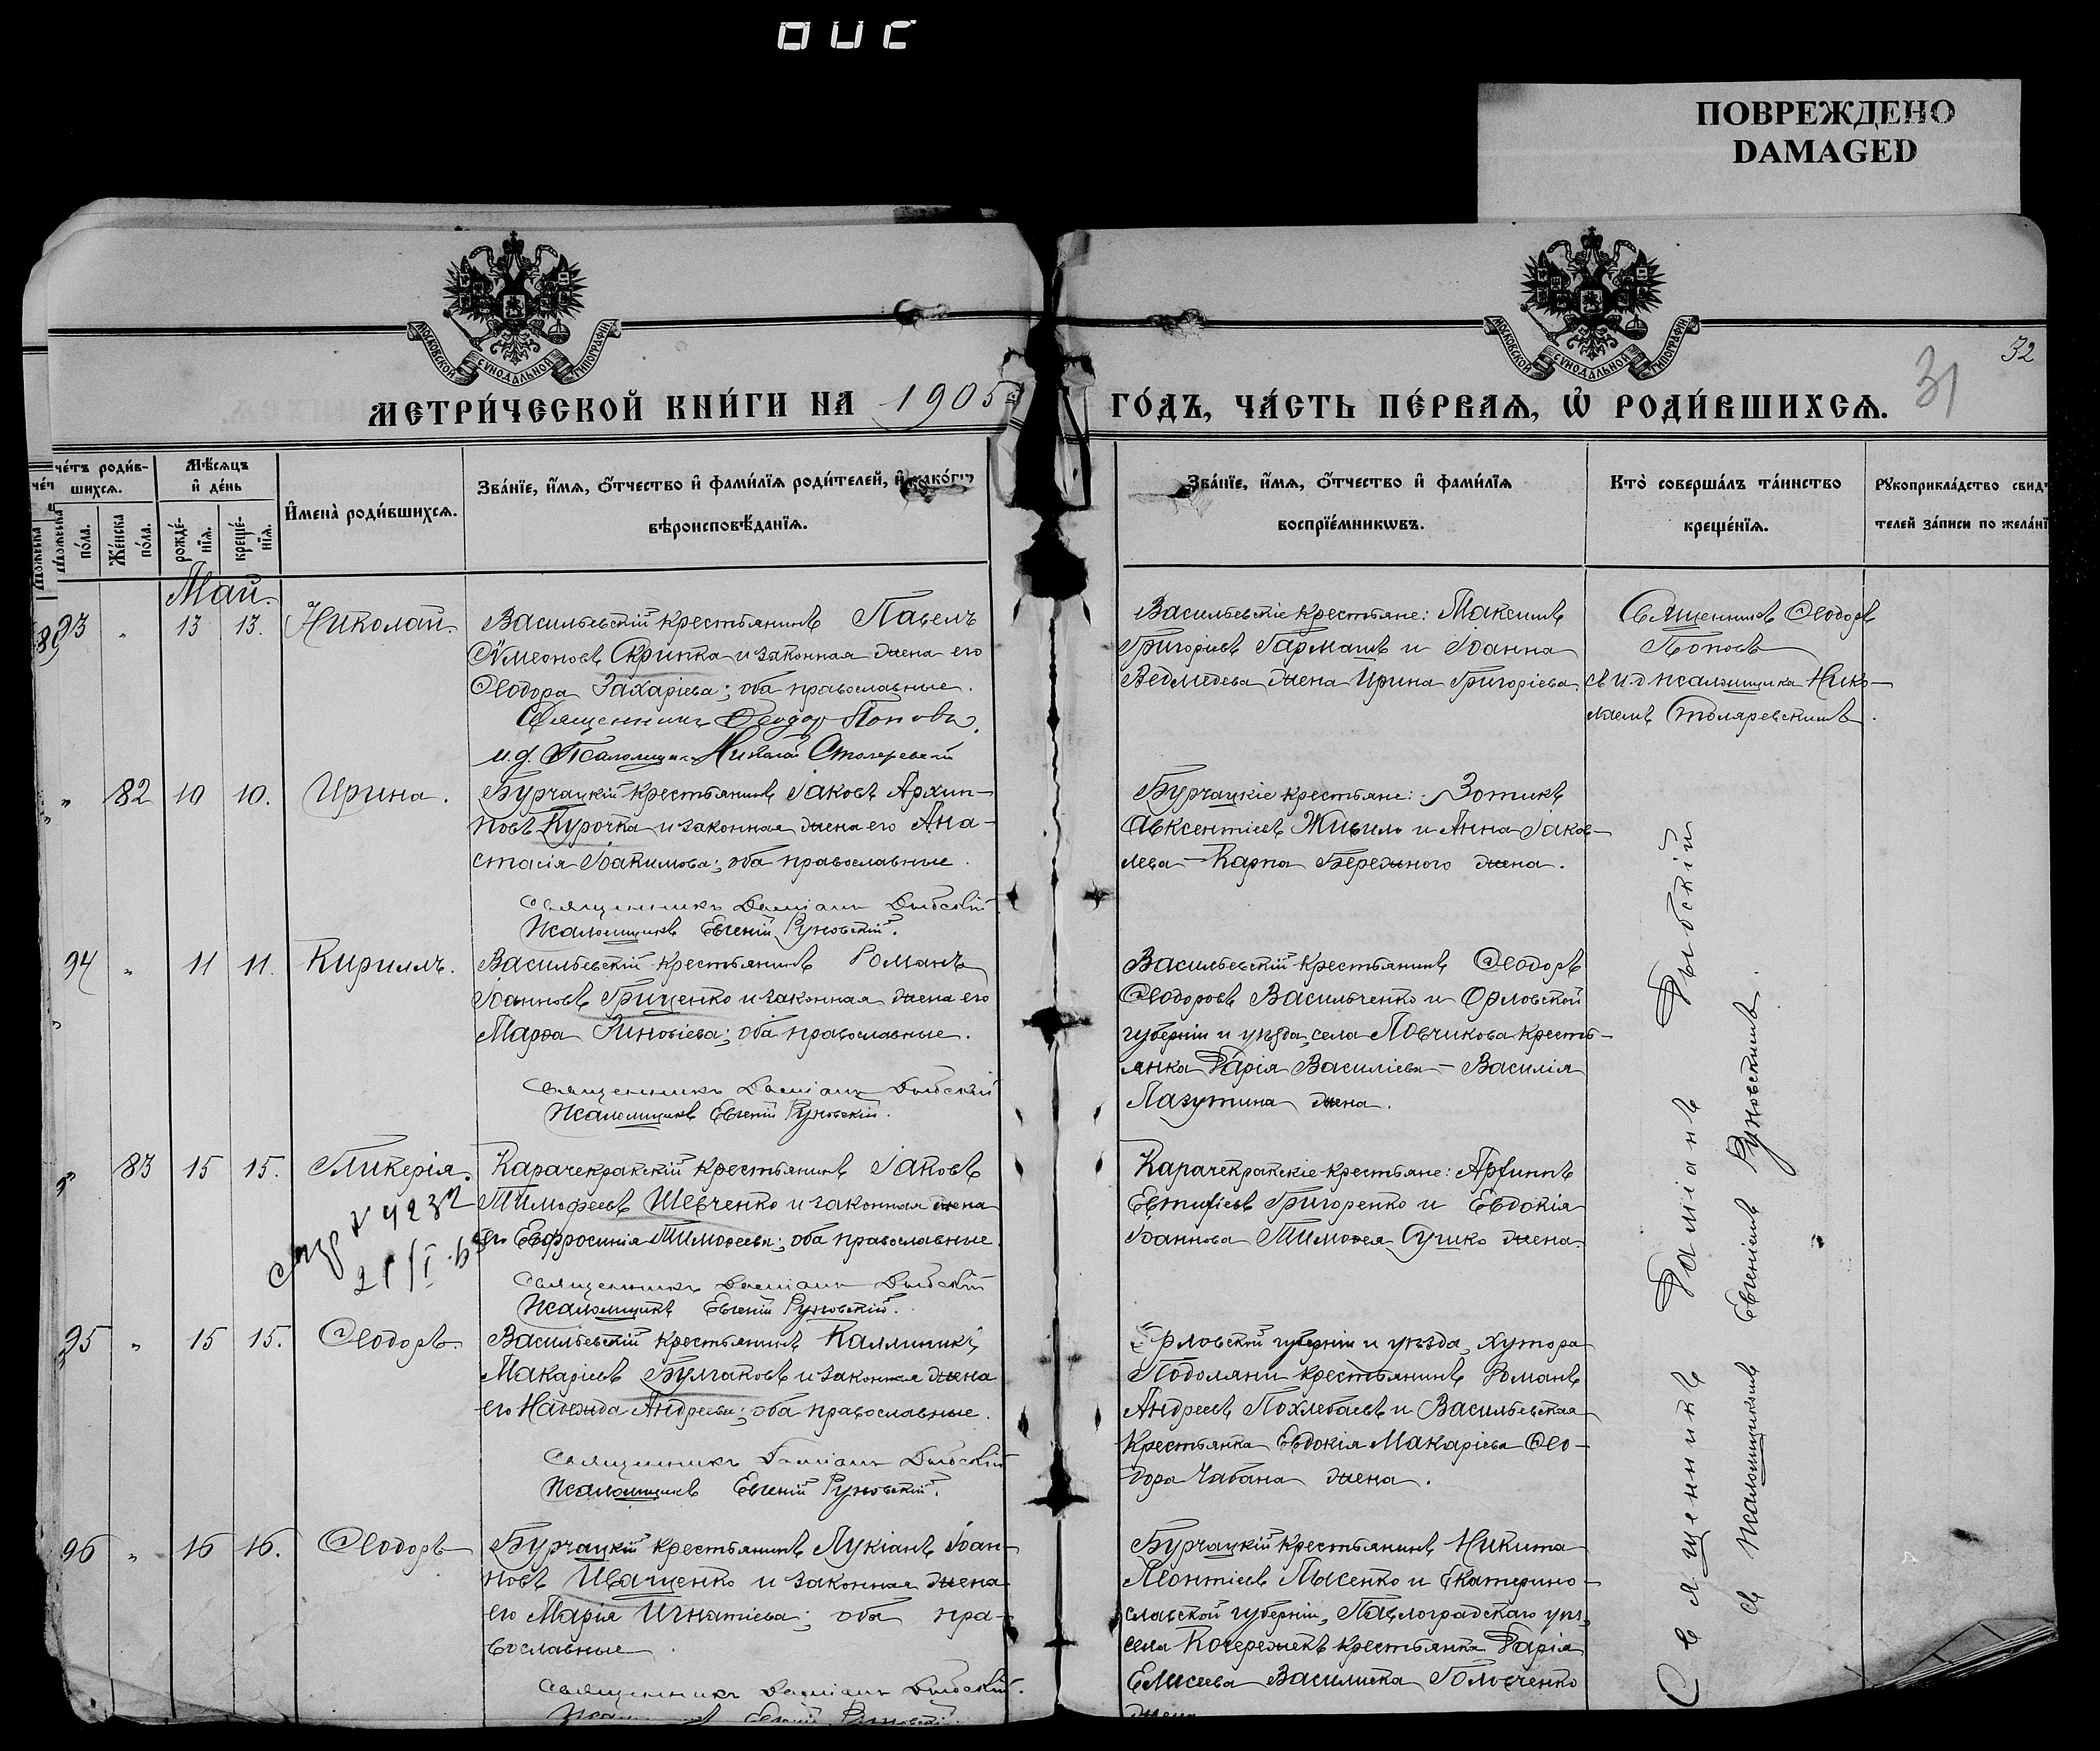 ПОВРЕЖДЕНО
DAMAGED
МОСКОВСКОЙ СѴНОДАЛЬНОЙ ТИПОГРАФІИ
МОСКОВСКОЙ СѴНОДАЛЬНОЙ ТИПОГРАФІИ
32
31
МЕТРИ́ЧЕСКОЙ КНИ́ГИ НА 1905
ГО́ДЪ, ЧА́СТЬ ПЕ́РВАѦ, Ѡ҆ РОДИ́ВШИХСѦ.
че́тъ роди́в-
шихсѧ.
по́ла.
Же́нска
по́ла.
Мѣ́сѧцъ
и҆ де́нь
рожде́-
нїѧ.
креще́-
нїѧ.
И҆мена̀ роди́вшихсѧ.
Зва́нїе, и҆́мѧ, ѻ҆́тчество и҆ фами́лїѧ роди́телей, и҆ како́гѡ
вѣроисповѣ́данїѧ.
Зва́нїе, и҆́мѧ, ѻ҆́тчество и҆ фами́лїѧ
воспрїе́мникѡвъ.
Кто̀ соверша́лъ та́инство
креще́нїѧ.
Рꙋкоприкла́дство свид
телей за́писи по жела́нї
Май.
93 „ 13 13. Николай.
Васильевскій крестьянинъ Павелъ
Сѵмеоновъ Скрипка и законная жена его
Ѳеодора Захаріева; оба православные.
Священникъ Ѳеодор Поповъ.
и.д. Псаломщика Николай Столяревскій
Васильевскіе крестьяне: Максимъ
Григоріевъ Гармашъ и Іоанна
Ведмедева жена Ирина Григоріева.
Священникъ Ѳеодоръ
Поповъ
съ и.д псаломщика Нико-
лаемъ Столяревскимъ.
„ 82 10 10. Ирина.
Бурчацкій крестьянинъ Іаковъ Архип-
повъ Курочка и законная жена его Ана-
стасія Іоакимова; оба православные.
Священникъ Даміанъ Дыбскій
Псаломщикъ Евгеній Руновскій.
Бурчацкіе крестьяне: Зотикъ
Авксентіевъ Живило и Анна Іаков-
лева - Карпа Бережного жена.
94 „ 11 11. Кириллъ.
Васильевскій крестьянинъ Романъ
Іоанновъ Гриценко и законная жена его
Марѳа Зиновіева; оба православные.
Священникъ Даміанъ Дыбскій
Псаломщикъ Евгеній Руновскій.
Васильевскій крестьянинъ Ѳеодоръ
Ѳеодоровъ Васильченко и Орловской
губерніи и уѣзда, села Ловчикова кресть-
янка Дарія Василіева - Василія
Лазутина жена.
„ 83 15 15. Гликерія.
N 4232
21/I
Карачекракскій крестьянинъ Іаковъ
Тимоѳеевъ Шевченко и законная жена
его Евфросинія Тимоѳеева; оба православные.
Священникъ Даміанъ Дыбскій
Псаломщикъ Евгеній Руновскій.
Карачекракскіе крестьяне:
Григоренко и Евдокія
Іоаннова Тимоѳея Сушко жена.
95 „ 15 15. Ѳеодоръ.
Васильевскій крестьянинъ Каллиникъ
Макаріевъ Булгаковъ и законная жена
его Надежда Андреева; оба православные.
Священникъ Даміанъ Дыбскій
Псаломщикъ Евгеній Руновскій.
Орловской губерніи и уѣзда, хутора
Подоляни крестьянинъ Романъ
Андреевъ Похлебаевъ и Васильевская
крестьянка Евдокія Макаріева Ѳео-
дора Чабана жена.
96 „ 16 16. Ѳеодоръ
Бурчацкій крестьянинъ Лукіанъ Іоан-
новъ Иващенко и законная жена
его Марія Игнатіева; оба пра-
вославные
Священникъ Даміанъ Дыбскій.
Псаломщикъ Евгеній Руновскій.
Бурчацкій крестьянинъ Никита
Леонтіевъ Лысенко и Екатерино-
славской губерніи, Павлоградскаго уѣз,
села Кочережекъ крестьянка Дарія
Елисеева Василиска Головченко
жена
Священникъ Даміанъ Дыбскій
съ псаломщикомъ Евгеніемъ Руновскимъ.